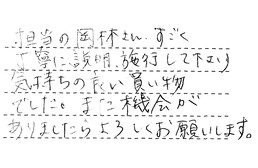 担当の岡林さん、すごく
丁寧に説明、施行して下さり
気持ちの良い買い物
でした。また機会が
ありましたらよろしくお願いします。